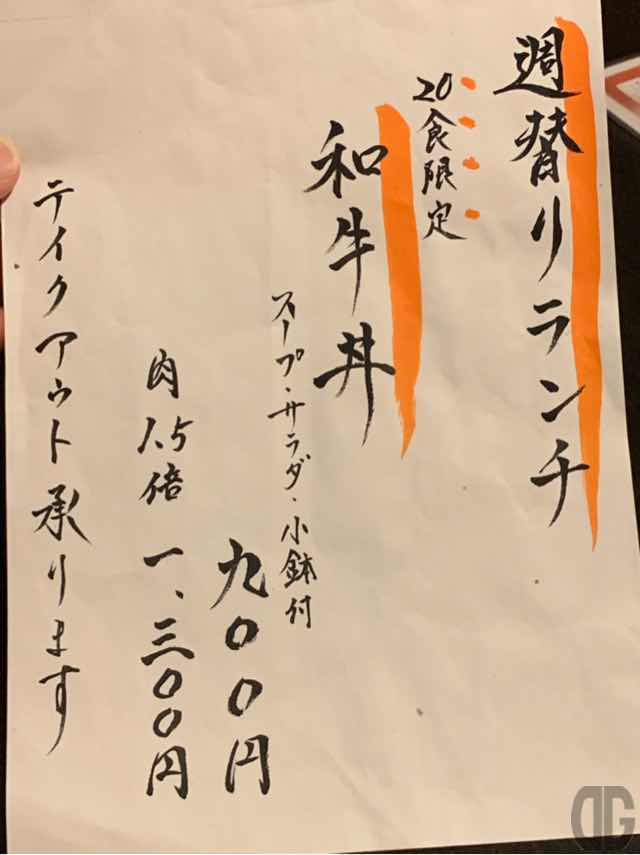 週替りランチ
20食限定
和牛丼
スープ・サラダ・小鉢付
九〇〇円
肉1.5倍 一、三〇〇円
テイクアウト承ります
DG